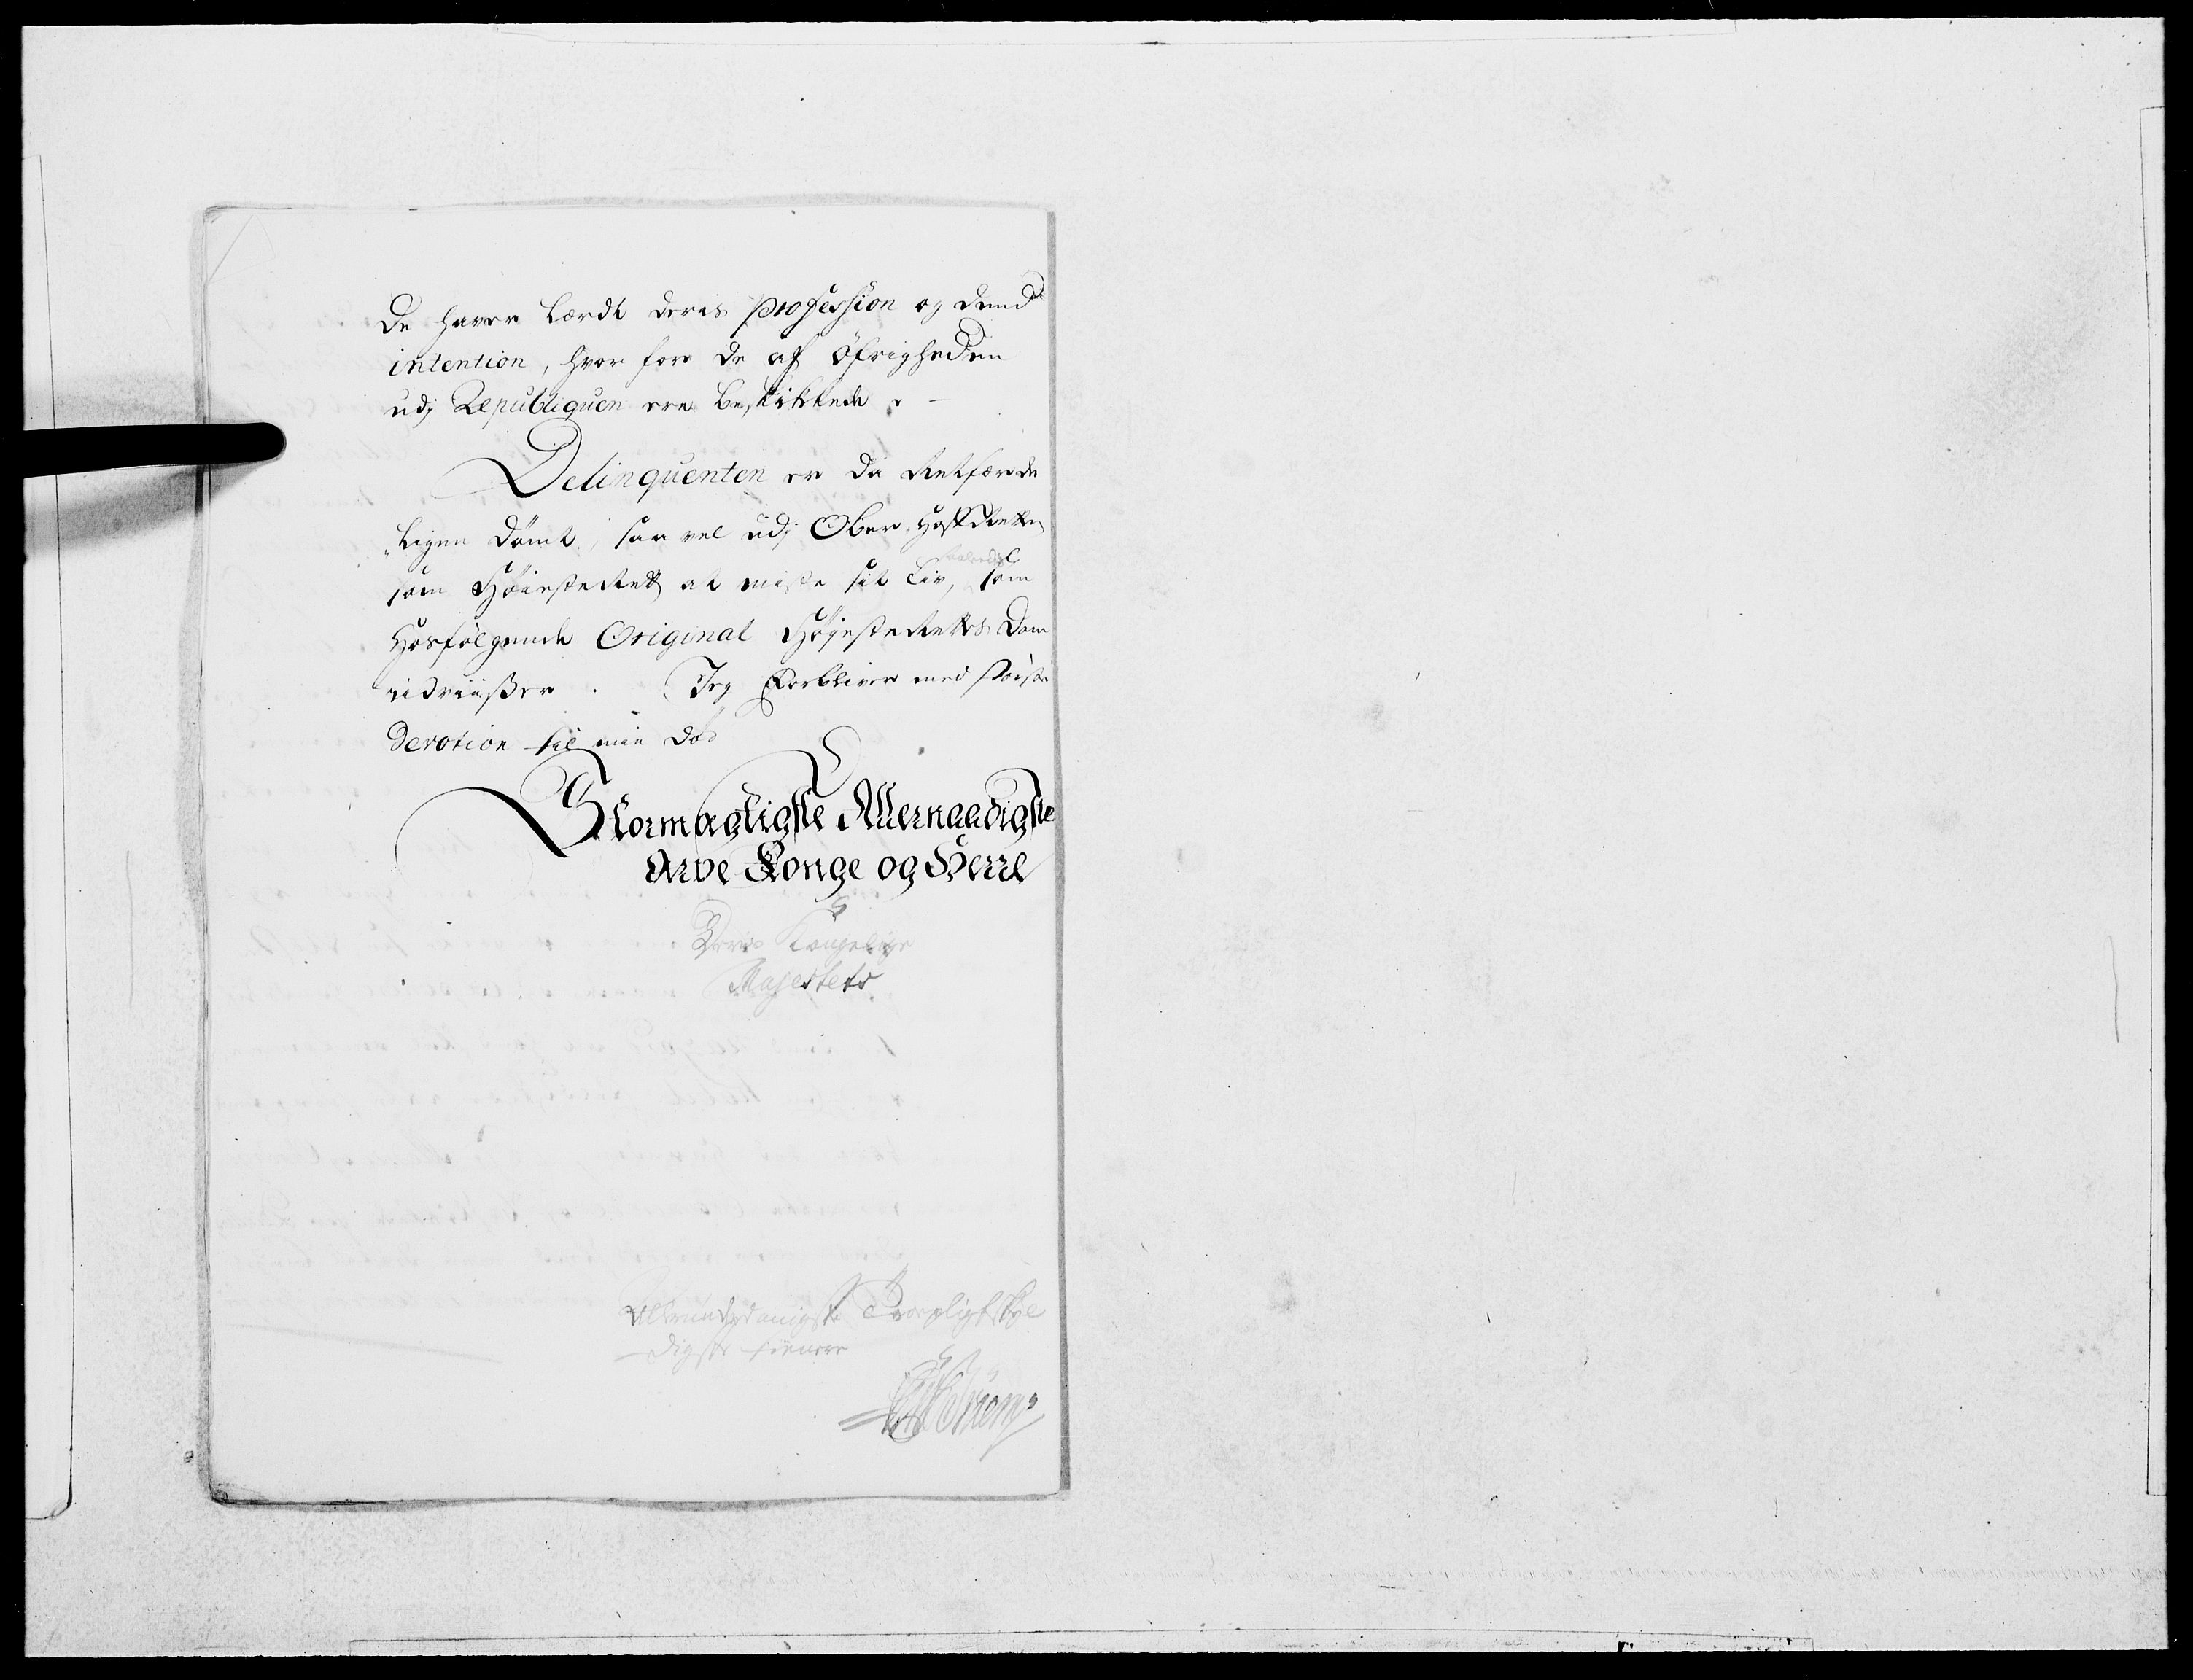 De haver Lærdt deris profession og dend
intention, hvor for de af Øfrigheden
udj Republiquen ere Beskikkede.
Delinquenten er da Retfærde
„ligen dømt, saa vel udj Ober Hoff Retten
som Høieste Rett at miste sit Liv, som
Hosfølgende Original Høyeste Retts Dom
udviißer. Jeg Forbliver med største
Devotion til min død
Stormægtigste Allernaadigste
Arve Konge og Herre
Deris Kongelige
Majestets
Allerunderdanigste Troepligtskyl
digste tienere